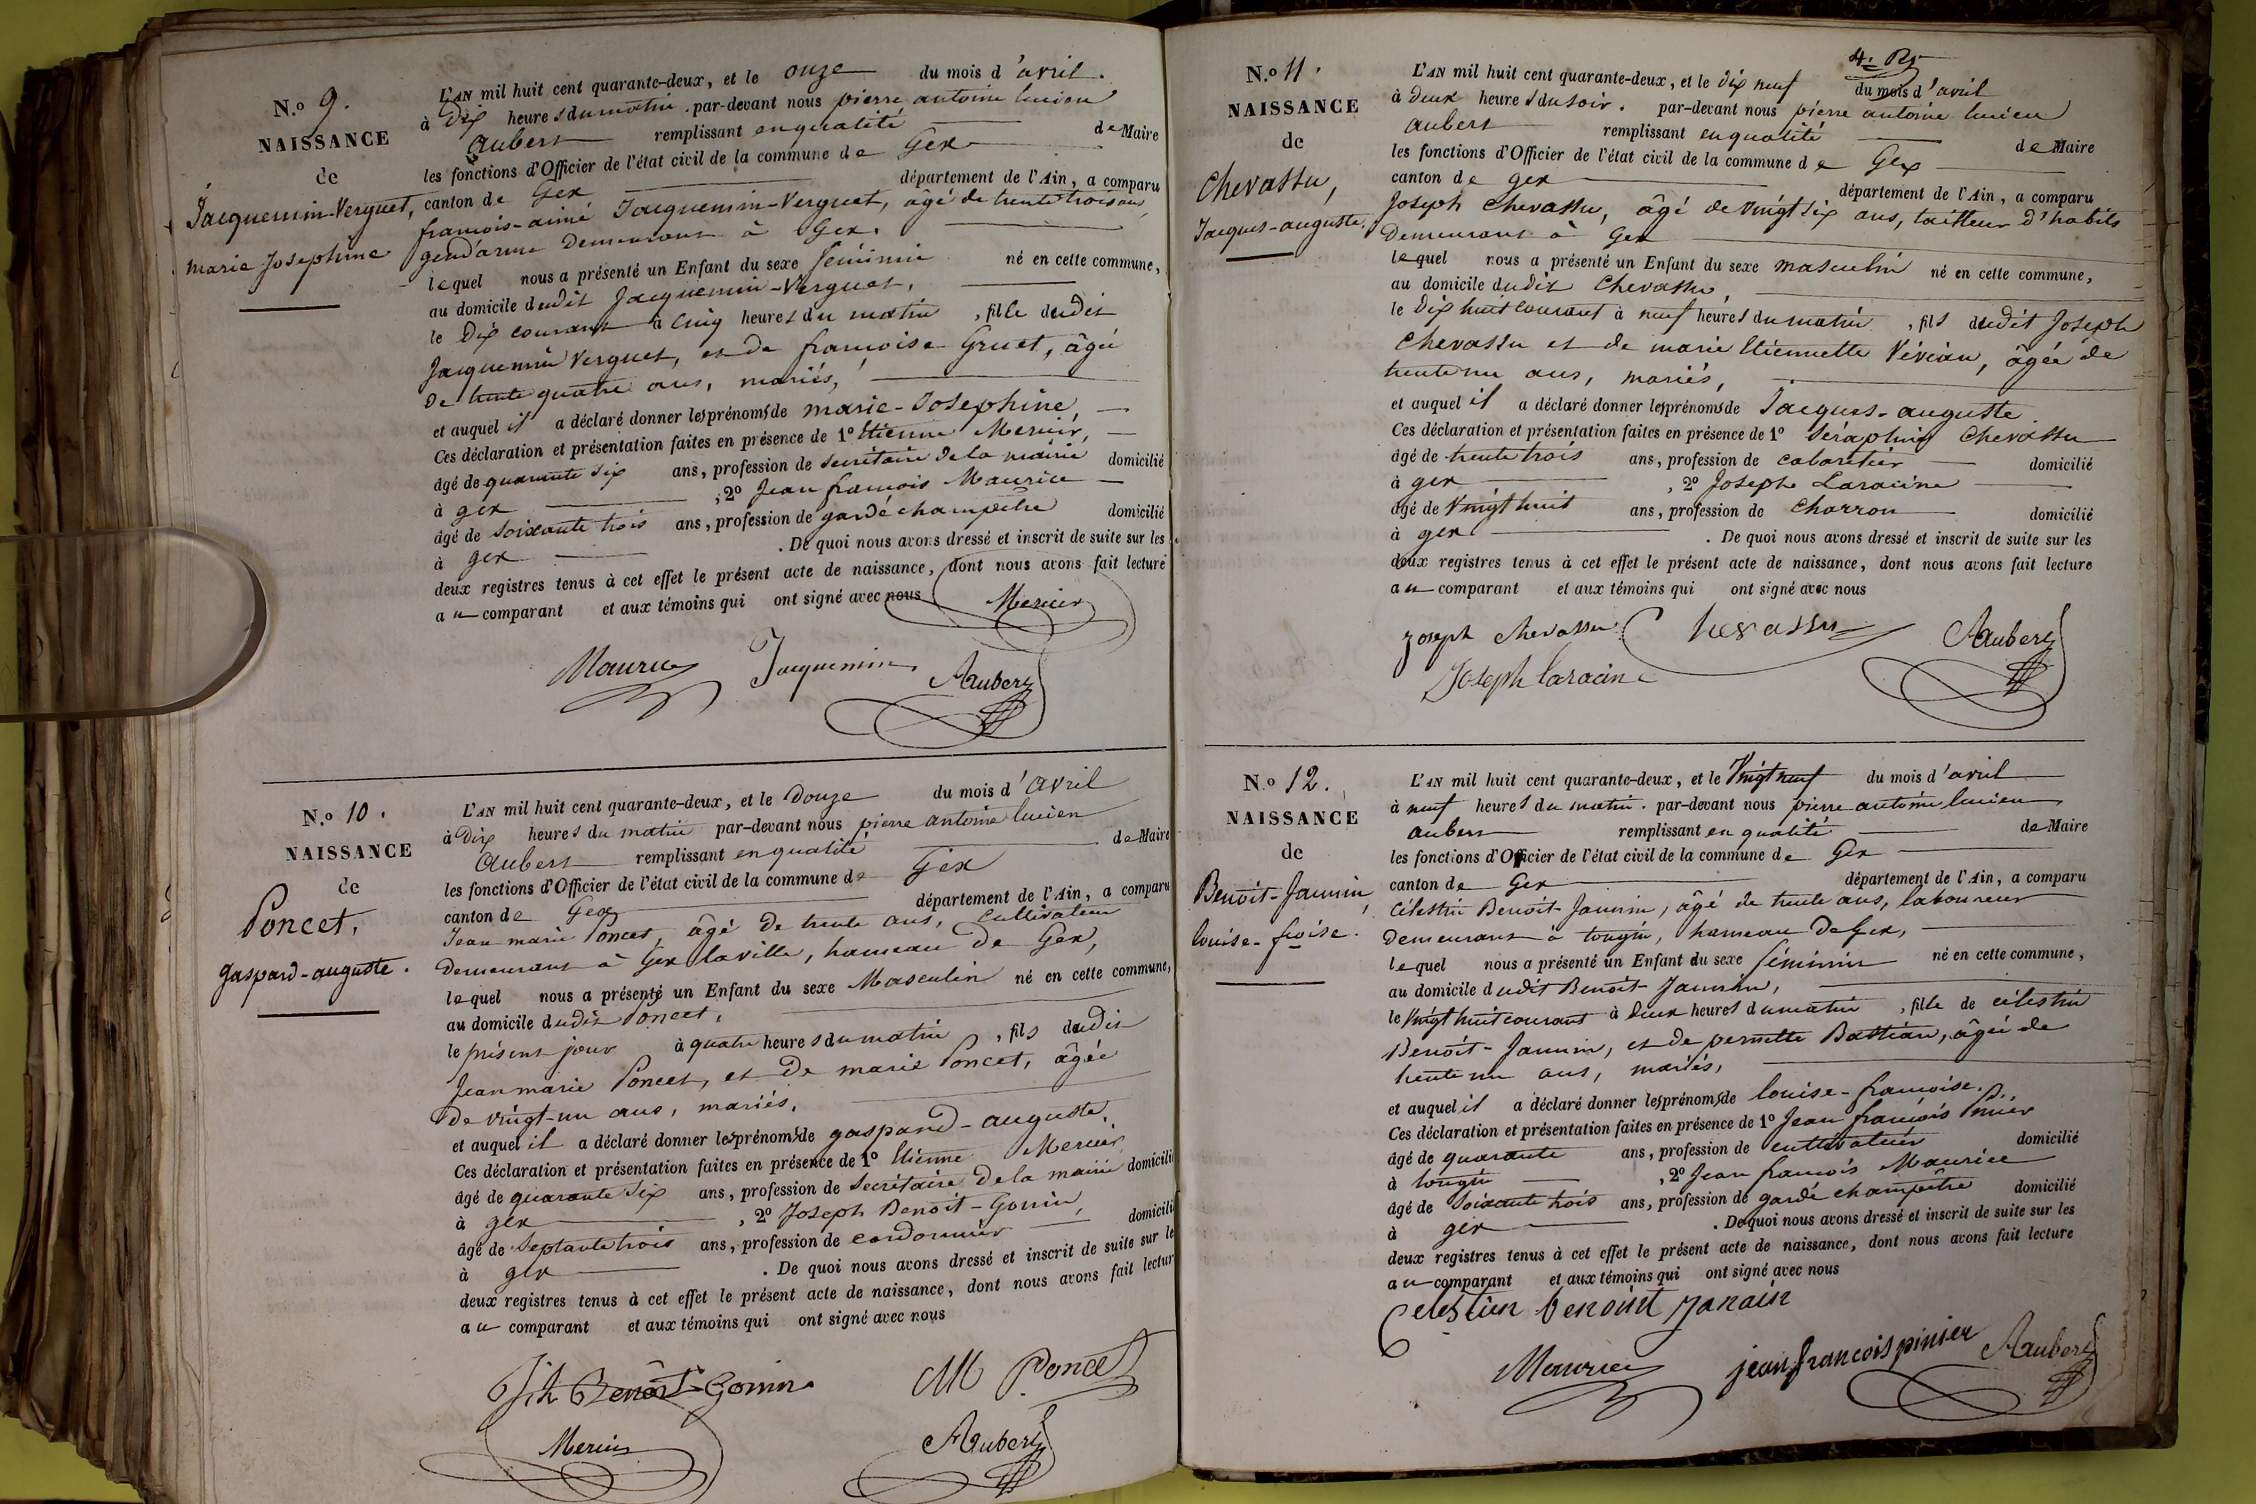 N.o 9.
NAISSANCE
de
Jacquemin-Verguet,
marie Josephine
L'AN mil huit cent quarante-deux, et le onze du mois d'avril.
à Dix heures du matin. par-devant nous pierre antoine lucien
aubert remplissant en qualité de Maire
les fonctions d'Officier de l'état civil de la commune de Gex
canton de Gex département de l'Ain, a comparu
francois-aimé Jacquemin-Verguet, âgé de trente trois ans,
gendarme Demeurant à Gex.
lequel nous a présenté un Enfant du sexe féminin né en cette commune,
au domicile dudit Jacquemin-Verguet,
le Dix courant à cinq heures du matin, fille dudit
Jacquemin Verguet, et de francoise Gruet, âgée
De trente quatre ans, mariés,
et auquel il a déclaré donner les prénoms de marie-Josephine,
Ces déclaration et présentation faites en présence de 1º Etienne Mercier,
âgé de quarante six ans, profession de secrétaire de la mairie domicilié
à gex ; 2º Jean francois Maurice
âgé de soixante trois ans, profession de garde champêtre domicilié
à gex . De quoi nous avons dressé et inscrit de suite sur les
deux registres tenus à cet effet le présent acte de naissance, dont nous avons fait lecture
au comparant et aux témoins qui ont signé avec nous
Mercier
Maurice Jacquemin Aubert
N.o 10.
NAISSANCE
de
Poncet,
gaspard-auguste.
L'AN mil huit cent quarante-deux, et le Douze du mois d'avril
à Dix heures du matin par-devant nous pierre antoine lucien
aubert remplissant en qualité de Maire
les fonctions d'Officier de l'état civil de la commune de Gex
canton de Gex département de l'Ain, a comparu
Jean marie Poncet, âgé de trente ans, cultivateur
demeurant à Gex laville, hameau de Gex,
lequel nous a présenté un Enfant du sexe Masculin né en cette commune,
au domicile dudit Poncet,
le présent jour à quatre heures du matin, fils dudit
Jean marie Poncet, et De marie Poncet, âgée
De vingt-un ans, mariés.
et auquel il a déclaré donner les prénoms de gaspard-auguste.
Ces déclaration et présentation faites en présence de 1º Etienne Mercier
âgé de quarante six ans, profession de secrétaire De la mairie domicilié
à gex , 2º Joseph Benoit-Gonin,
âgé de Septante trois ans, profession de cordonnier domicilié
à gex . De quoi nous avons dressé et inscrit de suite sur le
deux registres tenus à cet effet le présent acte de naissance, dont nous avons fait lectur
au comparant et aux témoins qui ont signé avec nous
Jh Benoît-Gonin JM Poncet
Mercier Aubert
N.o 11.
NAISSANCE
de
Chevassu,
Jacques-auguste.
L'AN mil huit cent quarante-deux, et le Dix neuf du mois d'avril
à Deux heures du soir. par-devant nous pierre antoine lucien
aubert remplissant en qualité de Maire
les fonctions d'Officier de l'état civil de la commune de Gex
canton de gex département de l'Ain, a comparu
Joseph Chevassu, âgé de vingt six ans, tailleur d'habits
Demeurant à Gex
lequel nous a présenté un Enfant du sexe masculin né en cette commune,
au domicile dudit Chevassu,
le Dix huit courant à neuf heures du matin, fils dudit Joseph
Chevassu et de marie Etiennette Vivian, âgée de
trente un ans, mariés,
et auquel il a déclaré donner les prénoms de Jacques-auguste
Ces déclaration et présentation faites en présence de 1º Séraphin Chevassu
âgé de trente trois ans, profession de cabaretier domicilié
à gex , 2º Joseph Laracine
âgé de Vingt huit ans, profession de Charron domicilié
à gex . De quoi nous avons dressé et inscrit de suite sur les
deux registres tenus à cet effet le présent acte de naissance, dont nous avons fait lecture
au comparant et aux témoins qui ont signé avec nous
Joseph chevassu Chevassu Aubert
Joseph laracine
N.o 12.
NAISSANCE
de
Benoit-Jannin,
louise-fcoise.
L'AN mil huit cent quarante-deux, et le Vingt neuf du mois d'avril
à neuf heures du matin. par-devant nous pierre antoine lucien
aubert remplissant en qualité de Maire
les fonctions d'Officier de l'état civil de la commune de Gex
canton de Gex département de l'Ain, a comparu
célestin Benoit-Jannin, âgé de trente ans, laboureur
demeurant à tougin, hameau De Gex,
lequel nous a présenté un Enfant du sexe féminin né en cette commune,
au domicile dudit Benoit-Jannin,
le Vingt huit courant à Deux heures du matin, fille de célestin
Benoit-Jannin, et de pernette Battian, âgée de
trente un ans, mariés,
et auquel il a déclaré donner les prénoms de louise-francoise.
Ces déclaration et présentation faites en présence de 1º Jean francois Pinier
âgé de quarante ans, profession de cultivateur domicilié
à tougin , 2º Jean francois Maurice
âgé de Soixante trois ans, profession de garde champêtre domicilié
à gex . De quoi nous avons dressé et inscrit de suite sur les
deux registres tenus à cet effet le présent acte de naissance, dont nous avons fait lecture
au comparant et aux témoins qui ont signé avec nous
Celestien benoint Janain
Maurice jean francois pinier Aubert